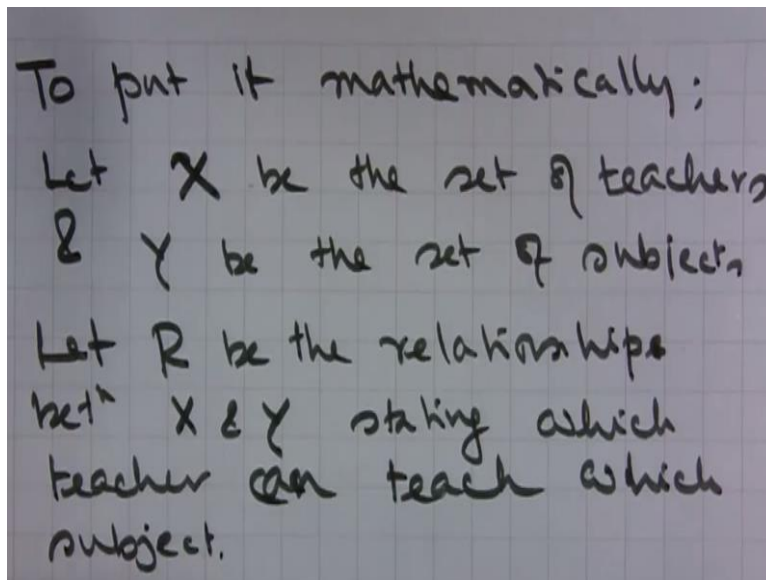 To put it mathematically:
Let X be the set of teachers
& Y be the set of subjects
Let R be the relationships
betn X & Y stating which
teacher can teach which
subject.